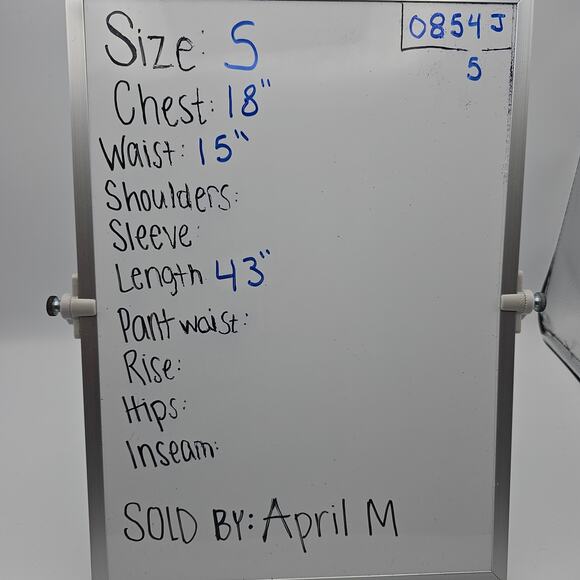 Size: S
0854J
5
Chest: 18"
Waist: 15"
Shoulders:
Sleeve:
Length 43"
Pant waist:
Rise:
Hips:
Inseam:
SOLD BY: April M